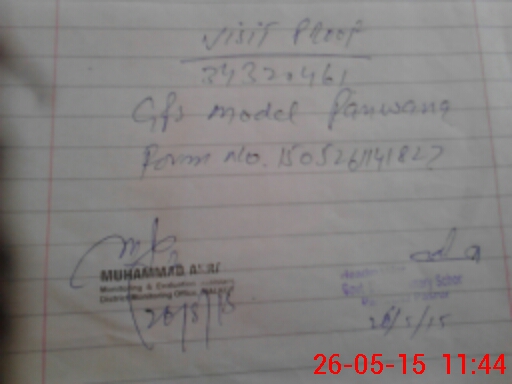 VISIT PROOF
34320461
GPS model Panwana
Form No. 1505261141827
MUHAMMAD
Monitoring & Evaluation
District Monitoring Office,
26/5/15
26/5/15
26-05-15 11:44